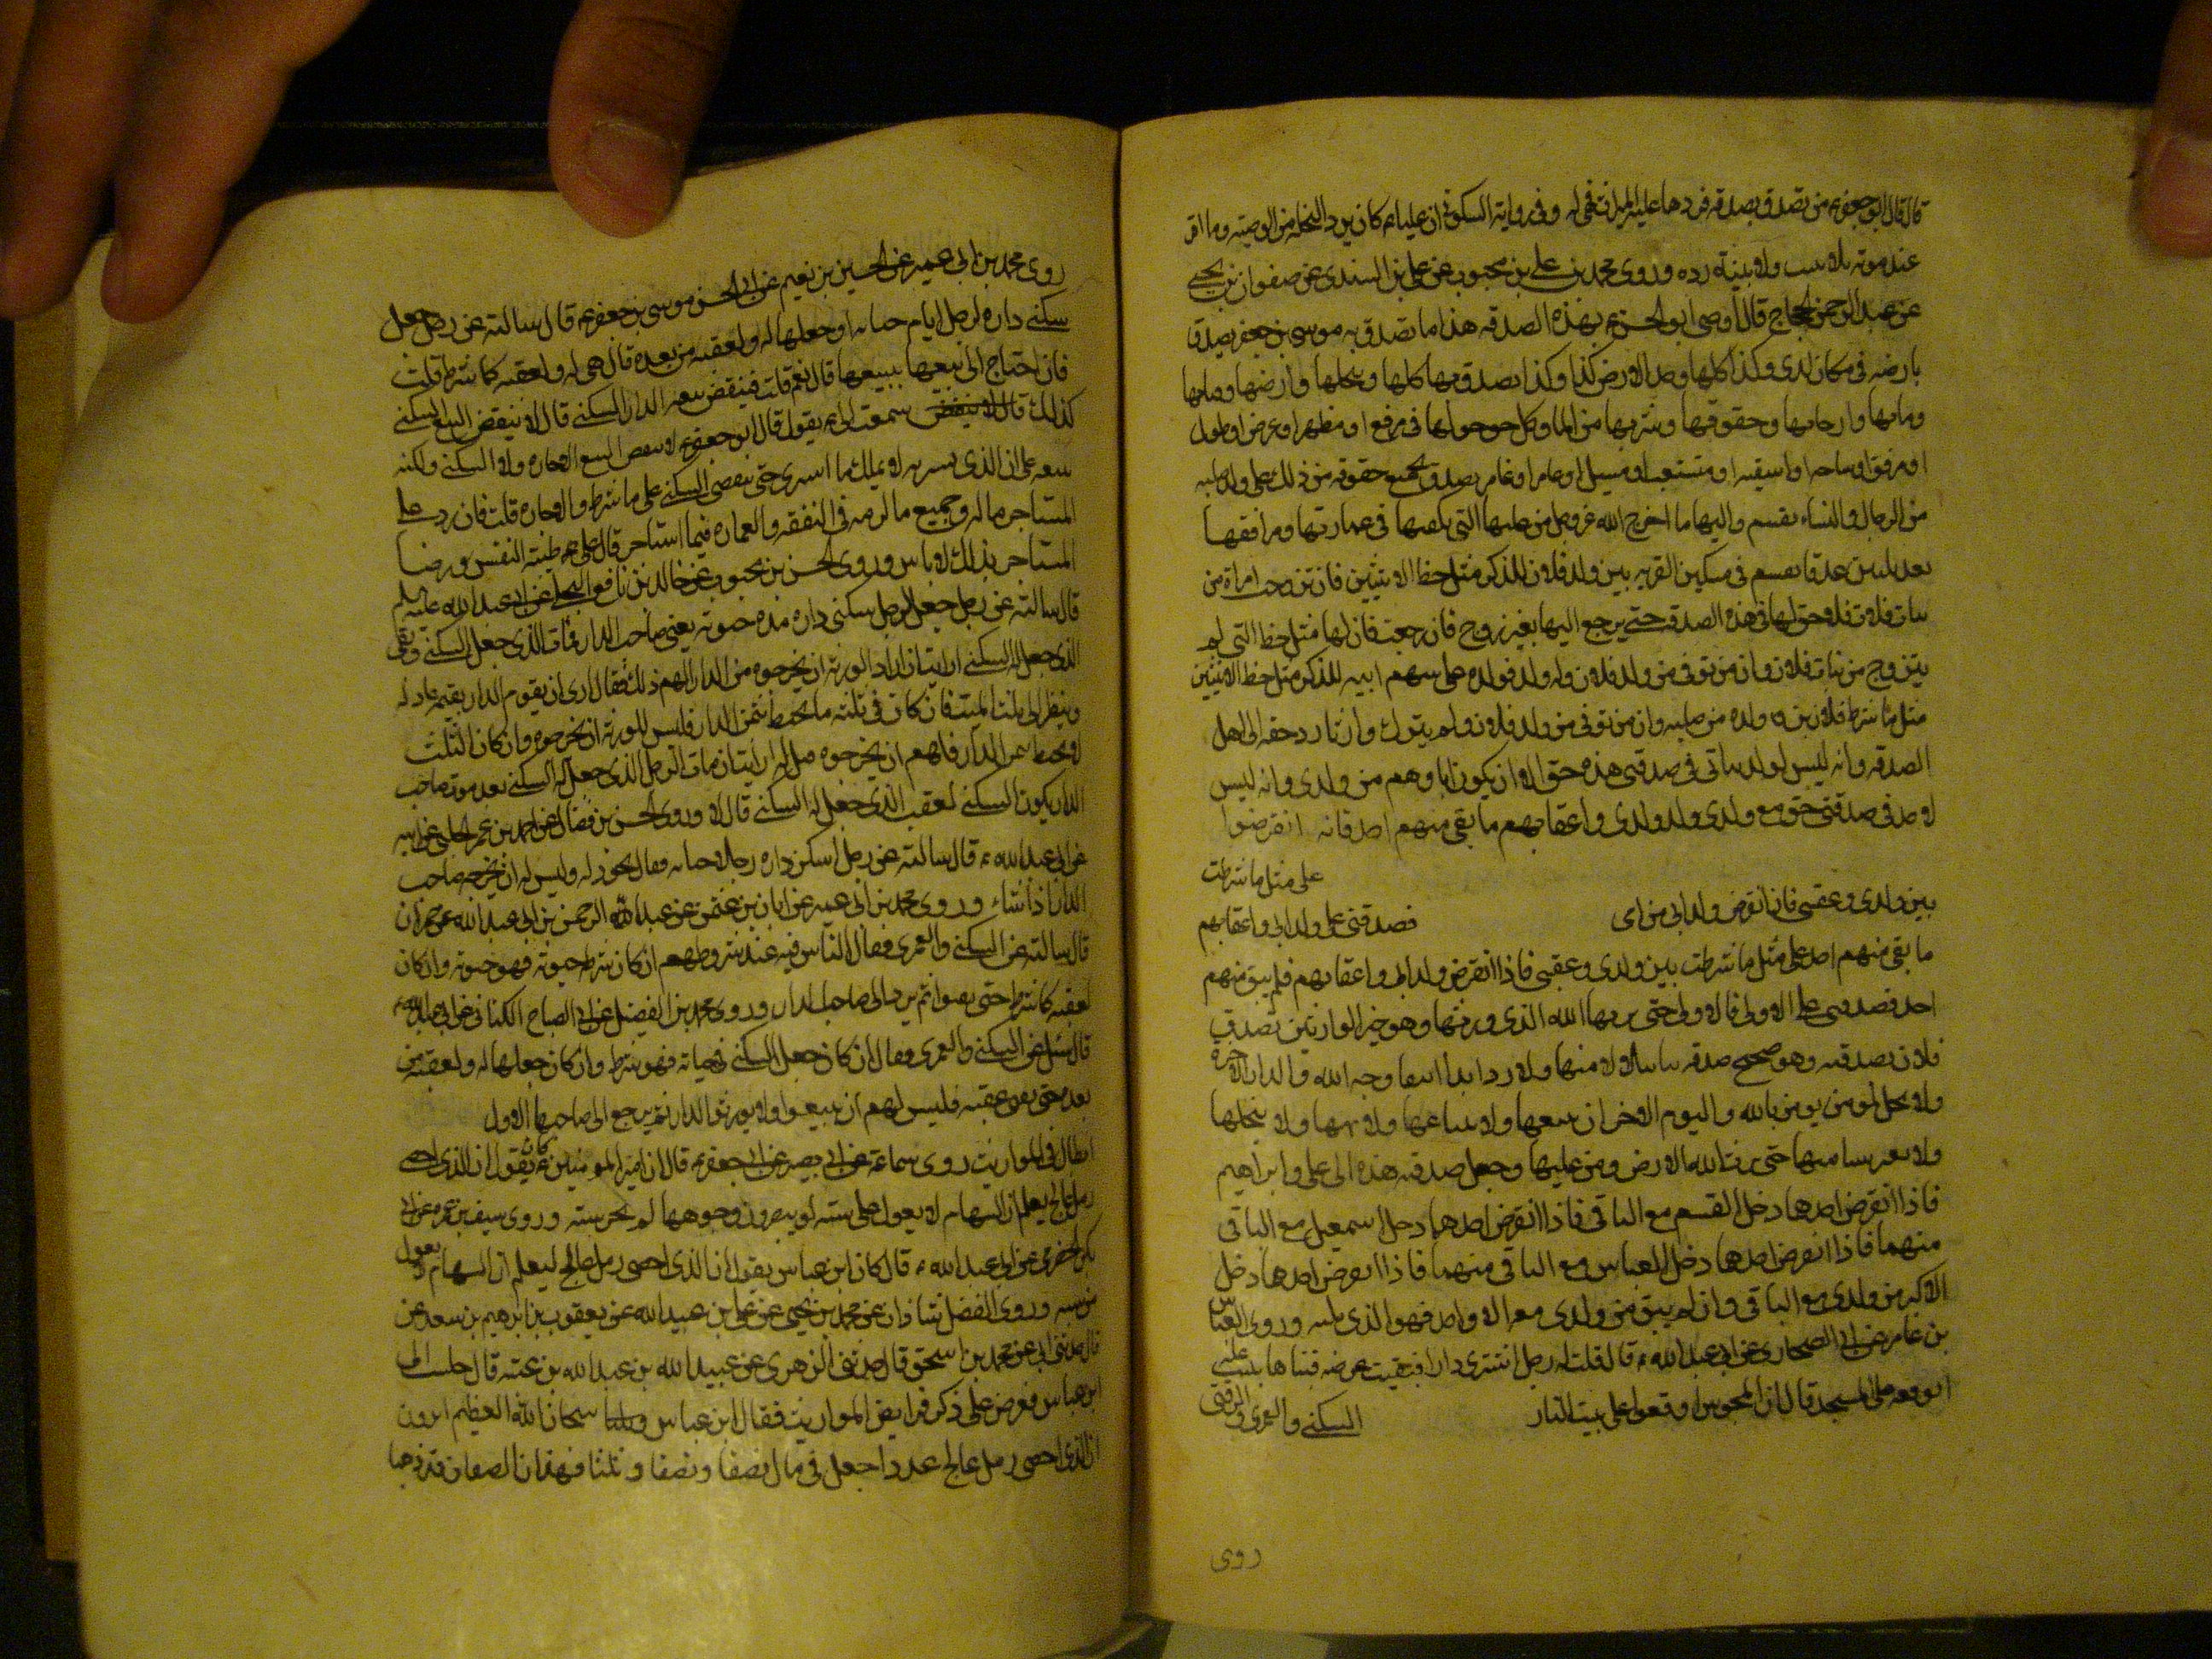 قال قال ابو جعفر ع من تصدق بصدقة فردها عليه الميراث فهى له وفى رواية السكونى ان عليا ع كان يرد النحلة من الوصيه وما اقر
عند موته بلا ثبت ولا بينة رده وروى محمد بن على بن محبوب عن على بن السندى عن صفوان بن يحيى
عن عبد الرحمن الحجاج قال اوصى ابو الحسن ع بهذه الصدقه هذا ما تصدق به موسى بن جعفر تصدق
بارضه فى مكان كذى وكذا كلها وحد الارض كذا وكذا تصدق بها كلها ونخلها وارضها وماءها
ومائها وارجائها وحقوقها وشربها من الماء وكل حق هو لها فى مرفع او مظهر او عرض او طول
او مرفق او ساحه او اسقيه او متشعب او مسيل او عامر او غامر تصدق بجميع حقوقه من ذلك على ولد صلبه
من الرجال والنساء يقسم واليها ما اخرج الله عز وجل من غلتها التى يكفيها فى عمارتها ومرافقها
بعد ثلثين عذقا يقسم فى مسكين القريه بين ولد فلان للذكر مثل حظ الانثيين فان تزوجت امراة من
بنات فلان فلا حق لها فى هذه الصدقه حتى يرجع اليها بغير زوج فان رجعت فان لها مثل حظ التى لم
يتزوج من بنات فلان وان من توفى من ولد فلان وله ولد فولده على سهم ابيه للذكر مثل حظ الانثيين
مثل ما شرط فلان بين ولده من صلبه وان من توفى من ولد فلان ولم يترك وارثا رد حقه الى اهل
الصدقه وانه ليس لولد بناتى فى صدقتى هذه حق الا ان يكون اباوهم من ولدى وانه ليس
لاحد فى صدقتى حق مع ولدى وولد ولدى واعقابهم ما بقى منهم احد فانه انقرضوا
على مثل ما شرطت
بين ولدى وعقبى فان انقرض ولد ابى من امى فصدقتى على ولد ابى واعقابهم
ما بقى منهم احد على مثل ما شرطت بين ولدى وعقبى فاذا انقرض ولد ابى واعقابهم فلم يبق منهم
احد فصدقتى على الاولى فالاولى حتى يرثها الله الذى ورثها وهو خير الوارثين تصدق
فلان بصدقته وهو صحيح صدقه بتا بتلا لا منها ولا رد ابدا ابتغا وجه الله والدار الاخرة
ولا يحل لمومن يومن بالله واليوم الاخر ان يبيعها ولا يبتاعها ولا يهبها ولا ينحلها
ولا يغير شيا منها حتى يرث الله الارض ومن عليها وجعل صدقته هذه الى على وابراهيم
فاذا انقرض احدهما دخل القسم مع الباقى فاذا انقرض احدهما دخل اسمعيل مع الباقى
منهما فاذا انقرض احدهما دخل العباس مع الباقى منهما فاذا انقرض احدهما دخل
الاكبر من ولدى مع الباقى وان لم يبق من ولدى معه الا واحد فهو الذى يليه وروى العباس
بن عامر عن ابى الصحارى عن ابى عبد الله ع قال قلت له رجل اشترى دارا فبقيت عرصه فبناها بيت غلة
ايوقفه على المسجد قال ان المجوس اوقفوا على بيت النار السكنى والعمرى والرقبى
روى
روى محمد بن ابى عمير عن الحسين بن نعيم عن ابى الحسن موسى بن جعفر ع قال سالته عن رجل جعل
سكنى داره لرجل ايام حياته او جعلها له ولعقبه من بعده قال هى له ولعقبه كما شرط قلت
فان احتاج الى بيعها يبيعها قال نعم قلت فينقض بيعه الدار السكنى قال لا ينقض البيع السكنى
كذلك قال لا ينقض سمعت ابى ع يقول قال ابو جعفر ع لا ينقض البيع الاجاره ولا السكنى ولكنه
يبيعه على ان الذى يشتريه لا يملك ما اشترى حتى ينقضى السكنى على ما شرط والاجاره قلت فان رد على
المستاجر ماله وجميع ما لزمه فى النفقه والعماره فيما استاجر قال على طيبة النفس ورضا
المستاجر بذلك لا باس وروى الحسن بن محبوب عن خالد بن نافع البجلى عن ابى عبد الله عليه السلم
قال سالته عن رجل جعل لرجل سكنى داره مدة حيوته يعنى صاحب الدار فمات الذى جعل السكنى وبقى
الذى جعل له السكنى ارايت ان اراد الورثه ان يخرجوه من الدار الهم ذلك فقال ارى ان يقوم الدار بقيمه عادله
وينظر الى ثلث الميت فان كان فى ثلثه ما يحيط بثمن الدار فليس للورثه ان يخرجوه وان كان الثلث
لا يحيط بثمن الدار فلهم ان يخرجوه قيل له ارايت ان مات الرجل الذى جعل له السكنى بعد موت صاحب
الدار يكون السكنى لعقب الذى جعل له السكنى قال لا وروى الحسن بن فضال عن احمد بن عمر الحلبى عن ابيه
عن ابى عبد الله ع قال سالته عن رجل اسكن داره رجلا حياته فقال يجوز له وليس له ان يخرجه صاحب
الدار اذا شاء وروى محمد بن ابى عمير عن ابان بن عثمن عن عبد الرحمن بن ابى عبد الله عن حمران
قال سالته عن السكنى والعمرى فقال الناس فيه عند شروطهم ان كان شرط حيوته فهو حيوته وان كان
لعقبه كما شرط حتى يفنوا ثم يرد الى صاحب الدار وروى محمد بن الفضيل عن ابى الصباح الكنانى عن ابى عبد الله ع
قال سئل عن السكنى والعمرى فقال ان كان جعل السكنى فى حياته فهو شرط وان كان جعلها له ولعقبه من
بعده حتى يفنى عقبه فليس لهم ان يبيعوا ولا يورثوا الدار ثم يرجع الى صاحبها الاول
ابطال فى المواريث روى سماعة عن ابى بصير عن ابى جعفر ع قال ان امير المومنين ع كان يقول ان الذى احصى
رمل عالج يعلم ان السهام لا يعول على سته لو يبصرون وجوهها لم تجز سته وروى سيف بن عميره عن ابى
بكر الحضرمى عن ابى عبد الله ع قال كان ابن عباس يقول ان الذى احصى رمل عالج ليعلم ان السهام لا يعول
من سته وروى الفضل بن شاذان عن محمد بن يحيى عن على بن عبيد الله عن يعقوب بن ابرهيم بن سعد عن
قال حدثنى ابى عن محمد بن اسحق قال حدثنى الزهرى عن عبيد الله بن عبد الله بن عتبه قال جلست الى
ابن عباس فعرض على ذكر فرايض المواريث فقال ابن عباس سبحان الله العظيم اترون
ان الذى احصى رمل عالج عددا جعل فى مال نصفا ونصفا وثلثا فهذان النصفان قد ذهبا